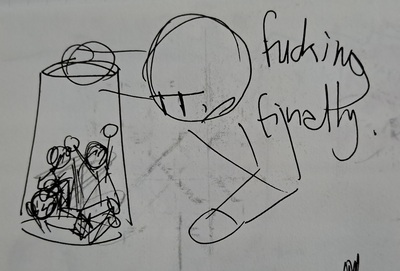 fucking
finally.